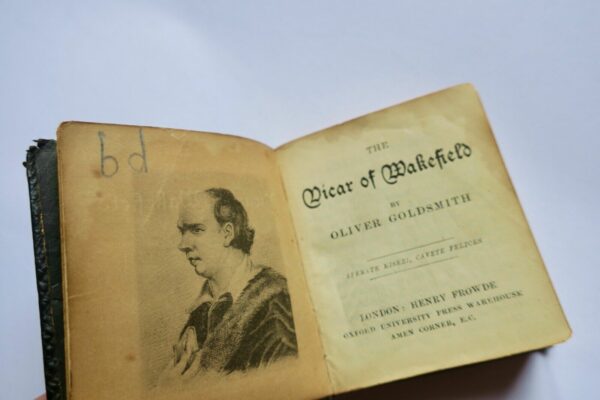 bd
THE
Vicar of Wakefield
BY
OLIVER GOLDSMITH
SPERATE MISERI, CAVETE FELICES
LONDON: HENRY FROWDE
OXFORD UNIVERSITY PRESS WAREHOUSE
AMEN CORNER, E.C.